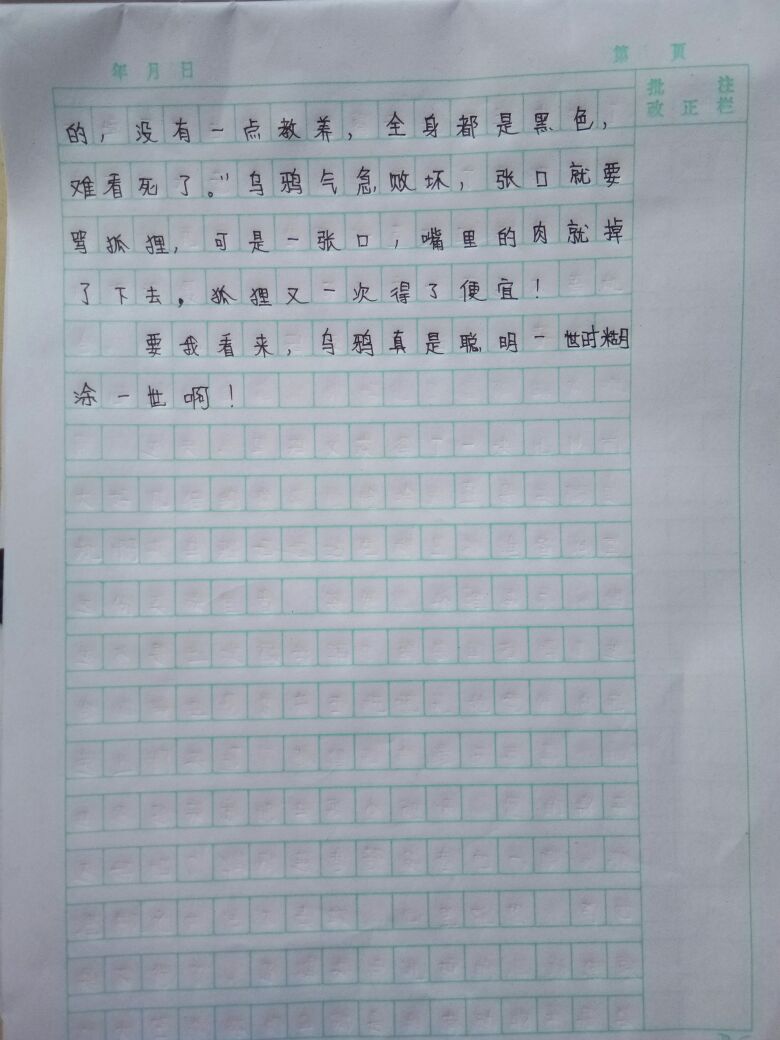 年 月 日
第 页
批 注
改 正 栏
的，没有一点教养，全身都是黑色，
难看死了。"乌鸦气急败坏，张口就要
骂狐狸，可是一张口，嘴里的肉就掉
了下去。狐狸又一次得了便宜！
要我看来，乌鸦真是聪明一世时糊
涂一世啊！